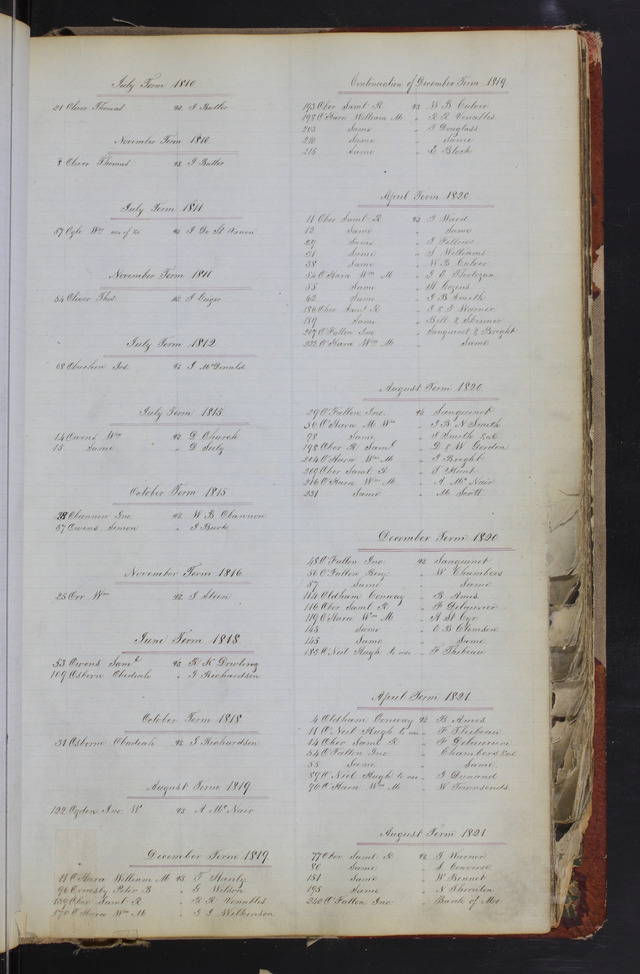 July Term 1810
21 Oliver Thomas vs J Butler
November Term 1810
8 Oliver Thomas vs J Butler
July Term 1811
57 Ogle Wm use of &c vs J De St
November Term 1811
54 Oliver Thos vs J
July Term 1812
68 Jos vs J McDonald
July Term 1815
14 Owens Wm vs D Church
15 Same " D
October Term 1815
28 Ohannon Jno vs W B Ohannon
37 Owens Simon " J Burk
November Term 1816
25 Orr Wm vs J Steen
June Term 1818
53 Owens Saml vs R K Dowling
109 Osborn Obadiah " J Richardson
October Term 1818
31 Osborne Obadiah vs J Richardson
August Term 1819
122 Ogden Jno W vs A McNair
December Term 1819
11 O'Hara William M vs T Hanly
96 Ormsby Peter B " G Wilson
139 Ober Saml R " R R Venables
170 O'Hara Wm M " G J Wilkinson
Continuation of December Term 1819
193 Ober Saml R vs W B Culver
198 O'Hara William M " R R Venables
203 Same " T Douglass
210 Same " Same
215 Same " E Block
April Term 1820
11 Ober Saml R vs J Ward
12 Same " Same
29 Same " J Fellows
31 Same " J Williams
38 Same " W B Culver
54 O'Hara Wm M " J C
55 Same " H Cozens
62 Same " J B Smith
180 Ober Saml R " J & J Warner
189 Same " Bell & Skinner
207 O'Fallon Jno " Sanguinet & Bright
232 O'Hara Wm M " Same
August Term 1820
29 O'Fallon Jno vs Sanguinet
56 O'Hara M Wm " J B N Smith
78 Same " J Smith
198 Ober R Saml " D & W Gordon
204 O'Hara Wm M " J Bright
209 Ober Saml R " T Hunt
216 O'Hara Wm M " A McNair
231 Same " M Scott
December Term 1820
48 O'Fallon Jno vs Sanguinet
56 O'Fallon Benj " W Chambers
87 Same " Same
114 Oldham Conway " B Ames
116 Ober Saml R " F Delaurier
119 O'Hara Wm M " A St Cyr
143 Same " C B Clemson
145 Same " Same
183 O'Neil Hugh to use " F Thibeau
April Term 1821
4 Oldham Conway vs B Ames
11 O'Neil Hugh to use " F Thibeau
14 Ober Saml R " F Delaurier
54 O'Fallon Jno " Chambers
55 Same " Same
89 O'Neil Hugh to use " J Durand
90 O'Hara Wm M " W Townsend
August Term 1821
77 Ober Saml R vs J Warner
80 Same " S Converse
181 Same " W Bennet
195 Same " N Thornton
240 O'Fallon Jno " Bank of Mo